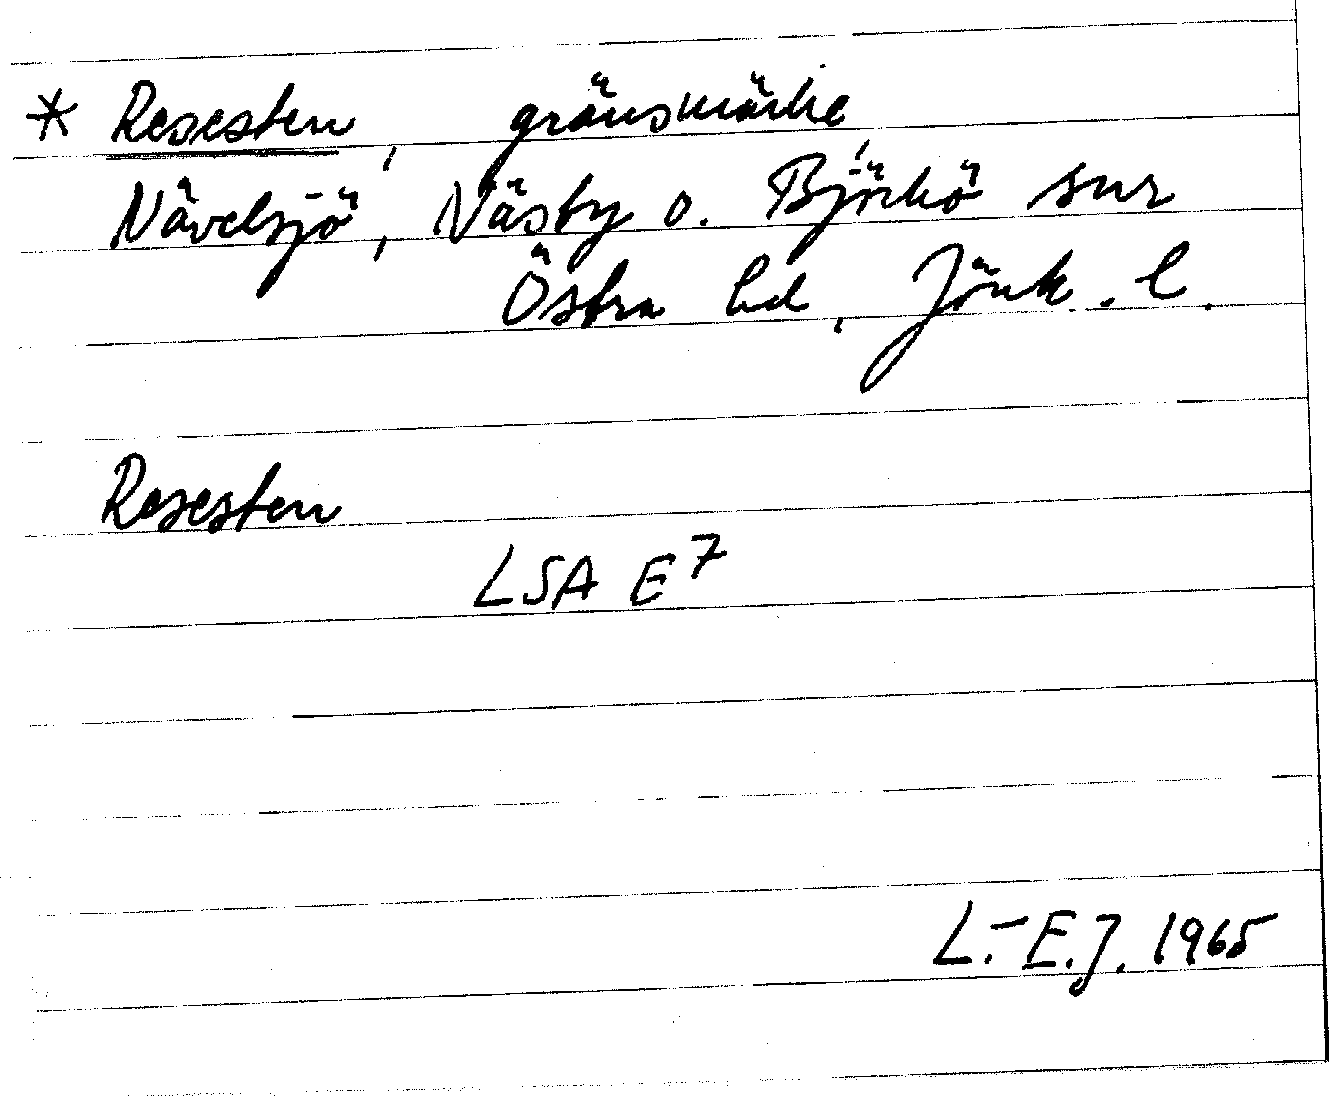 * Resesten, gränsmärke,
Nävelsjö, Näsby o. Björkö snr
Östra hd, Jönk. l.
Resesten
LSA E7
L.-E.J. 1965